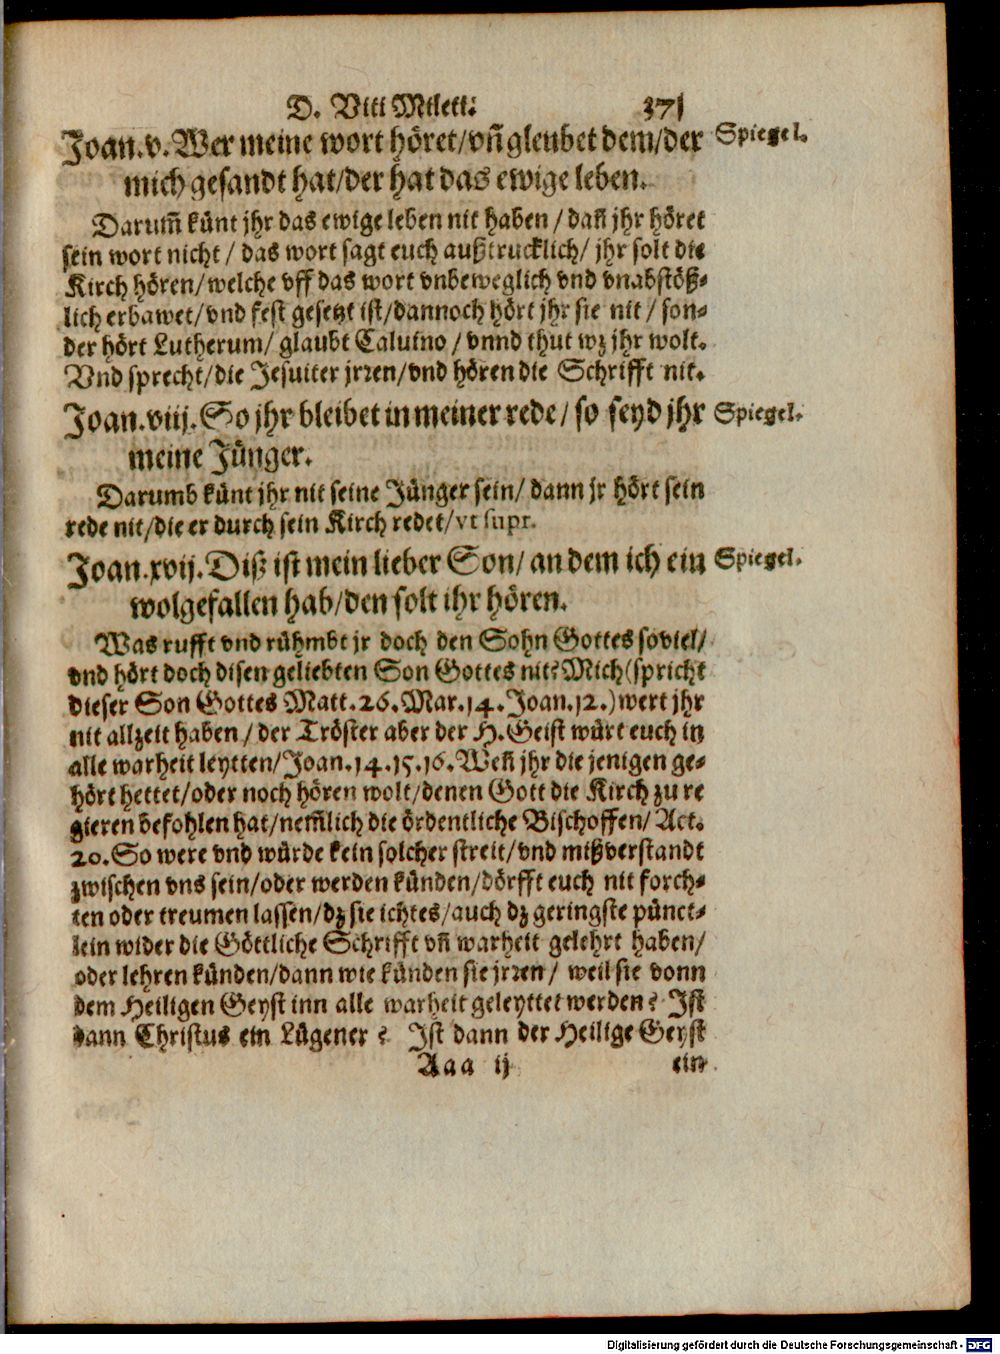 D. Viti Miletti. 371
Joan.v. Wer meine wort höret/vñ gleubet dem/der Spiegel.
mich gesandt hat/der hat das ewige leben.
Darum̃ künt jhr das ewige leben nit haben / dañ jhr höret
sein wort nicht / das wort sagt euch außtrucklich/ jhr solt die
Kirch hören/welche vff das wort vnbeweglich vnd vnabstöß-
lich erbawet/vnd fest gesetzt ist/dannoch hört jhr sie nit / son-
der hört Lutherum/ glaubt Caluino / vnnd thut wz jhr wolt.
Vnd sprecht/die Jesuiter jrren/vnd hören die Schrifft nit.
Joan.viij. So jhr bleibet in meiner rede/ so seyd jhr Spiegel.
meine Jünger.
Darumb künt jhr nit seine Jünger sein/ dann jr hört sein
rede nit/die er durch sein Kirch redet/vt supr.
Joan.xvij. Diß ist mein lieber Son/ an dem ich ein Spiegel.
wolgefallen hab/den solt ihr hören.
Was rufft vnd rühmbt jr doch den Sohn Gottes soviel/
vnd hört doch disen geliebten Son Gottes nit? Mich (spricht
dieser Son Gottes Matt.26.Mar.14.Joan.12.) wert jhr
nit allzeit haben / der Tröster aber der H. Geist würt euch in
alle warheit leytten/Joan.14.15.16. Weñ jhr die jenigen ge-
hört hettet/oder noch hören wolt/denen Gott die Kirch zu re
gieren befohlen hat/nem̃lich die ördentliche Bischoffen/ Act.
20. So were vnd würde kein solcher streit/vnd mißverstandt
zwischen vns sein/oder werden künden/dörfft euch nit forch-
ten oder treumen lassen/dz sie ichtes/auch dz geringste pünct-
lein wider die Göttliche Schrifft vñ warheit gelehrt haben/
oder lehren künden/dann wie künden sie jrren/ weil sie vonn
dem Heiligen Geyst inn alle warheit geleyttet werden? Ist
dann Christus ein Lügener? Ist dann der Heilige Geyst
Aaa ij ein
Digitalisierung gefördert durch die Deutsche Forschungsgemeinschaft - DFG